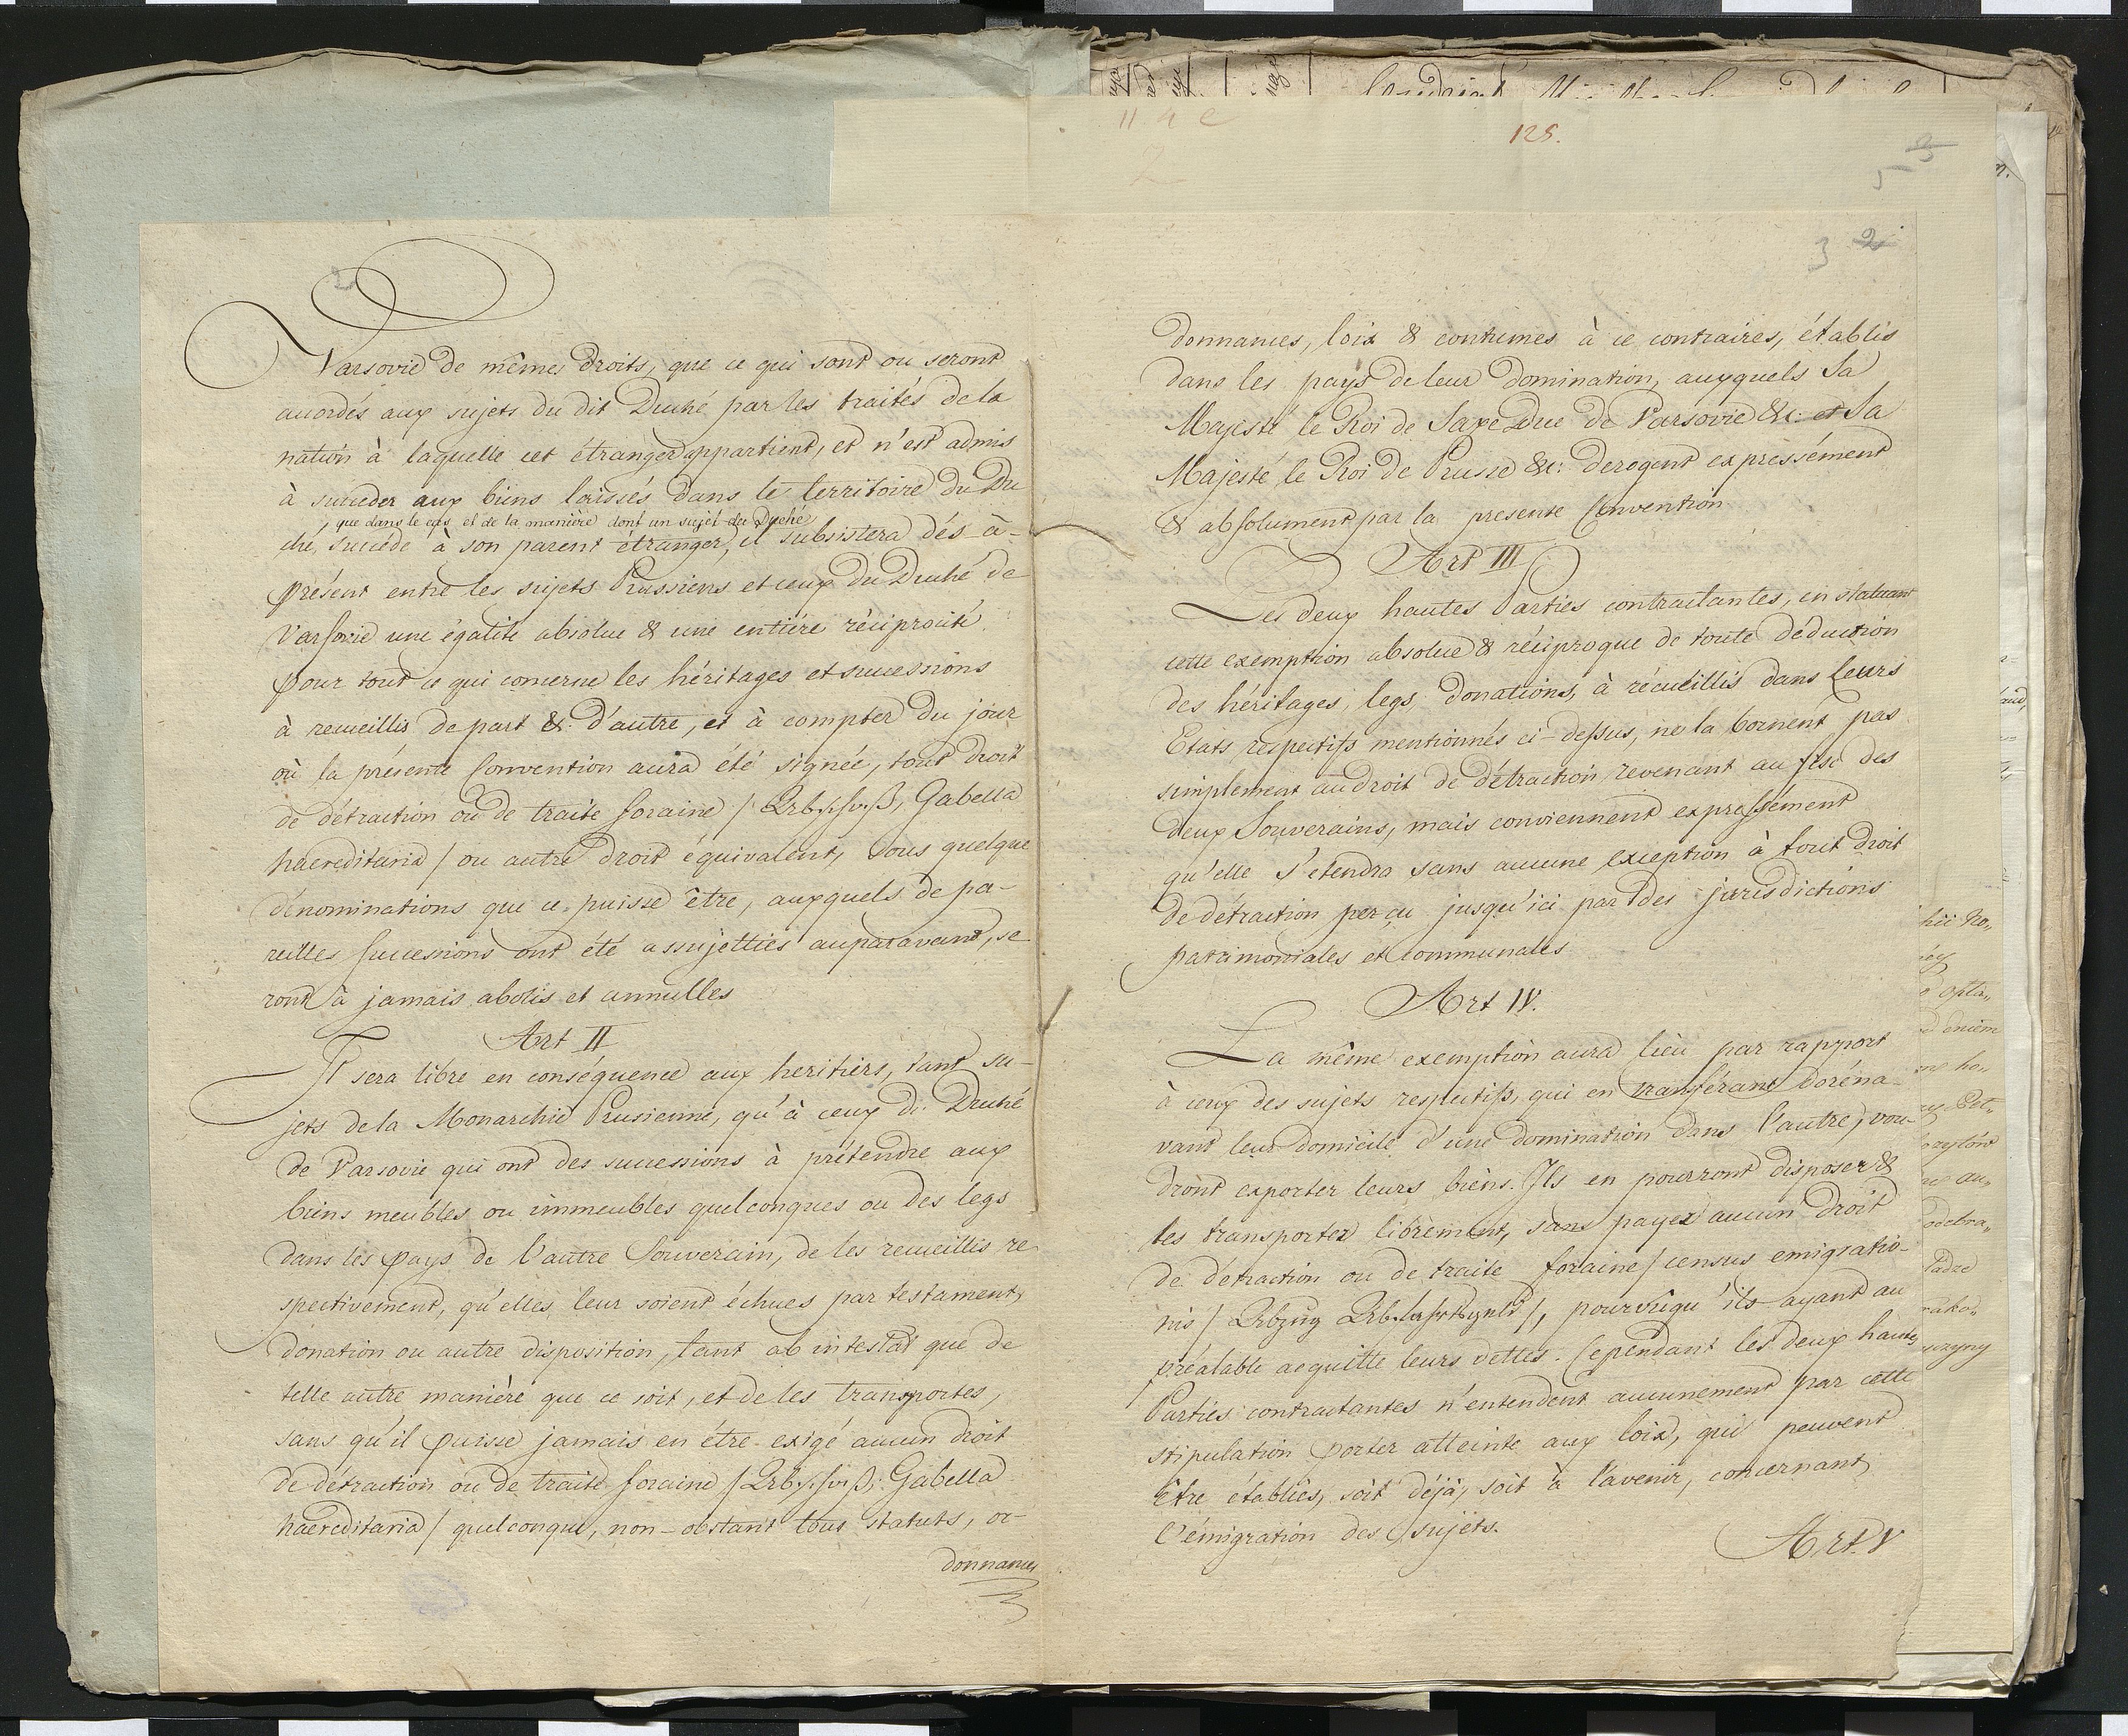 Varsovie de mêmes droits, que ce qui sont ou seront
accordés aux sujets du dit Duché par les traités de la
nation à laquelle cet étranger appartient, et n'est admis
à succeder aux biens laissés dans le territoire du Du
, que dans le cas et de la manière dont un sujet du Duché
ché, succéde à son parent étranger, il subsistera dés-à-
présent entre les sujets Prussiens et ceux du Duché de
Varsovie une égalité absolue & une entiére réciprocité
pour tout ce qui concerne les héritages et successions
à recueillis de part &. d'autre, et à compter du jour
où la présente Convention aura été signée, tout droit
de détraction ou de traite foraine / Gabella
haereditaria / ou autre droit équivalent, sous quelque
dénominations que ce puisse être, auxquels de pa-
reilles successions ont été assujetties auparavant, se
ront à jamais abolis et annulles
Art II
Il sera libre en conséquence aux heritiers, tant su-
jets de la Monarchie Prusienne, qu'à ceux du Duché
de Varsovie qui ont des successions à prétendre aux
biens meubles ou immeubles quelconques ou des legs
dans les pays de l'autre Souverain, de les recueillis re
spectivement, qu'elles leur soient échues par testament,
donation ou autre disposition, tant ab intestat que de
telle autre manière que ce soit, et de les transportes,
sans qu'il puisse jamais en étre exigé aucun droit
de détraction ou de traite foraine / Gabella
haereditaria / quelconque, non-obstant tous statuts, or-
donnances
11 4 e
2
125.
5 3
3 2
donnances, loix & contumes à ce contraires, établis
dans les pays de leur Domination, auxquels Sa
Majesté le Roi de Saxe Duc de Varsovie &c: et Sa
Majesté le Roi de Prusse &c: derogent expressément
& absolument par la presente Convention
Art III
Les deux hautes Parties contractantes, en statuant
cette exemption absolue & réciproque de toute déduction
des héritages, legs, donations, à récueillis dans leurs
Etats respectifs mentionnés ci-dessus, ne la bornent pas
simplement au droit de détraction revenant au fisc des
deux Souverains, mais conviennent expressément
qu'elle s'etendra sans aucune exception à tout droit
de détraction perçu jusqu'ici par des jurisdictions
patrimoniales et communales
Art IV.
La même exemption aura lieu par rapport
à ceux des sujets respectifs, qui en transférant doréna-
vant leur domicile d'une domination dans l'autre, vou-
dront exporter leurs biens. Ils en pourront disposer &
les transporter librement, sans payer aucun droit
de détraction ou de traite foraine / census emigratio-
nis / pourvûqu'ils ayant au
préalable acquitte leurs dettes. Cependant les deux hautes
Parties contractantes n'entendent aucunement par cette
stipulation porter atteinte aux loix, qui peuvent
être établies, soit déjà, soit à l'avenir, concernant
l'émigration des sujets.
Art. V